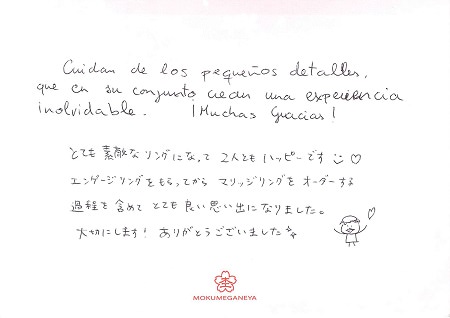 Cuidan de los pequeños detalles,
que en su conjunto crean una experiencia
inolvidable. ¡Muchas Gracias!
とても素敵なリングになって 2人ともハッピーです ☺ ♡
エンゲージリングをもらってから マリッジリングを オーダーする
過程を含めて とても良い思い出になりました。
大切にします! ありがとうございました
MOKUMEGANEYA